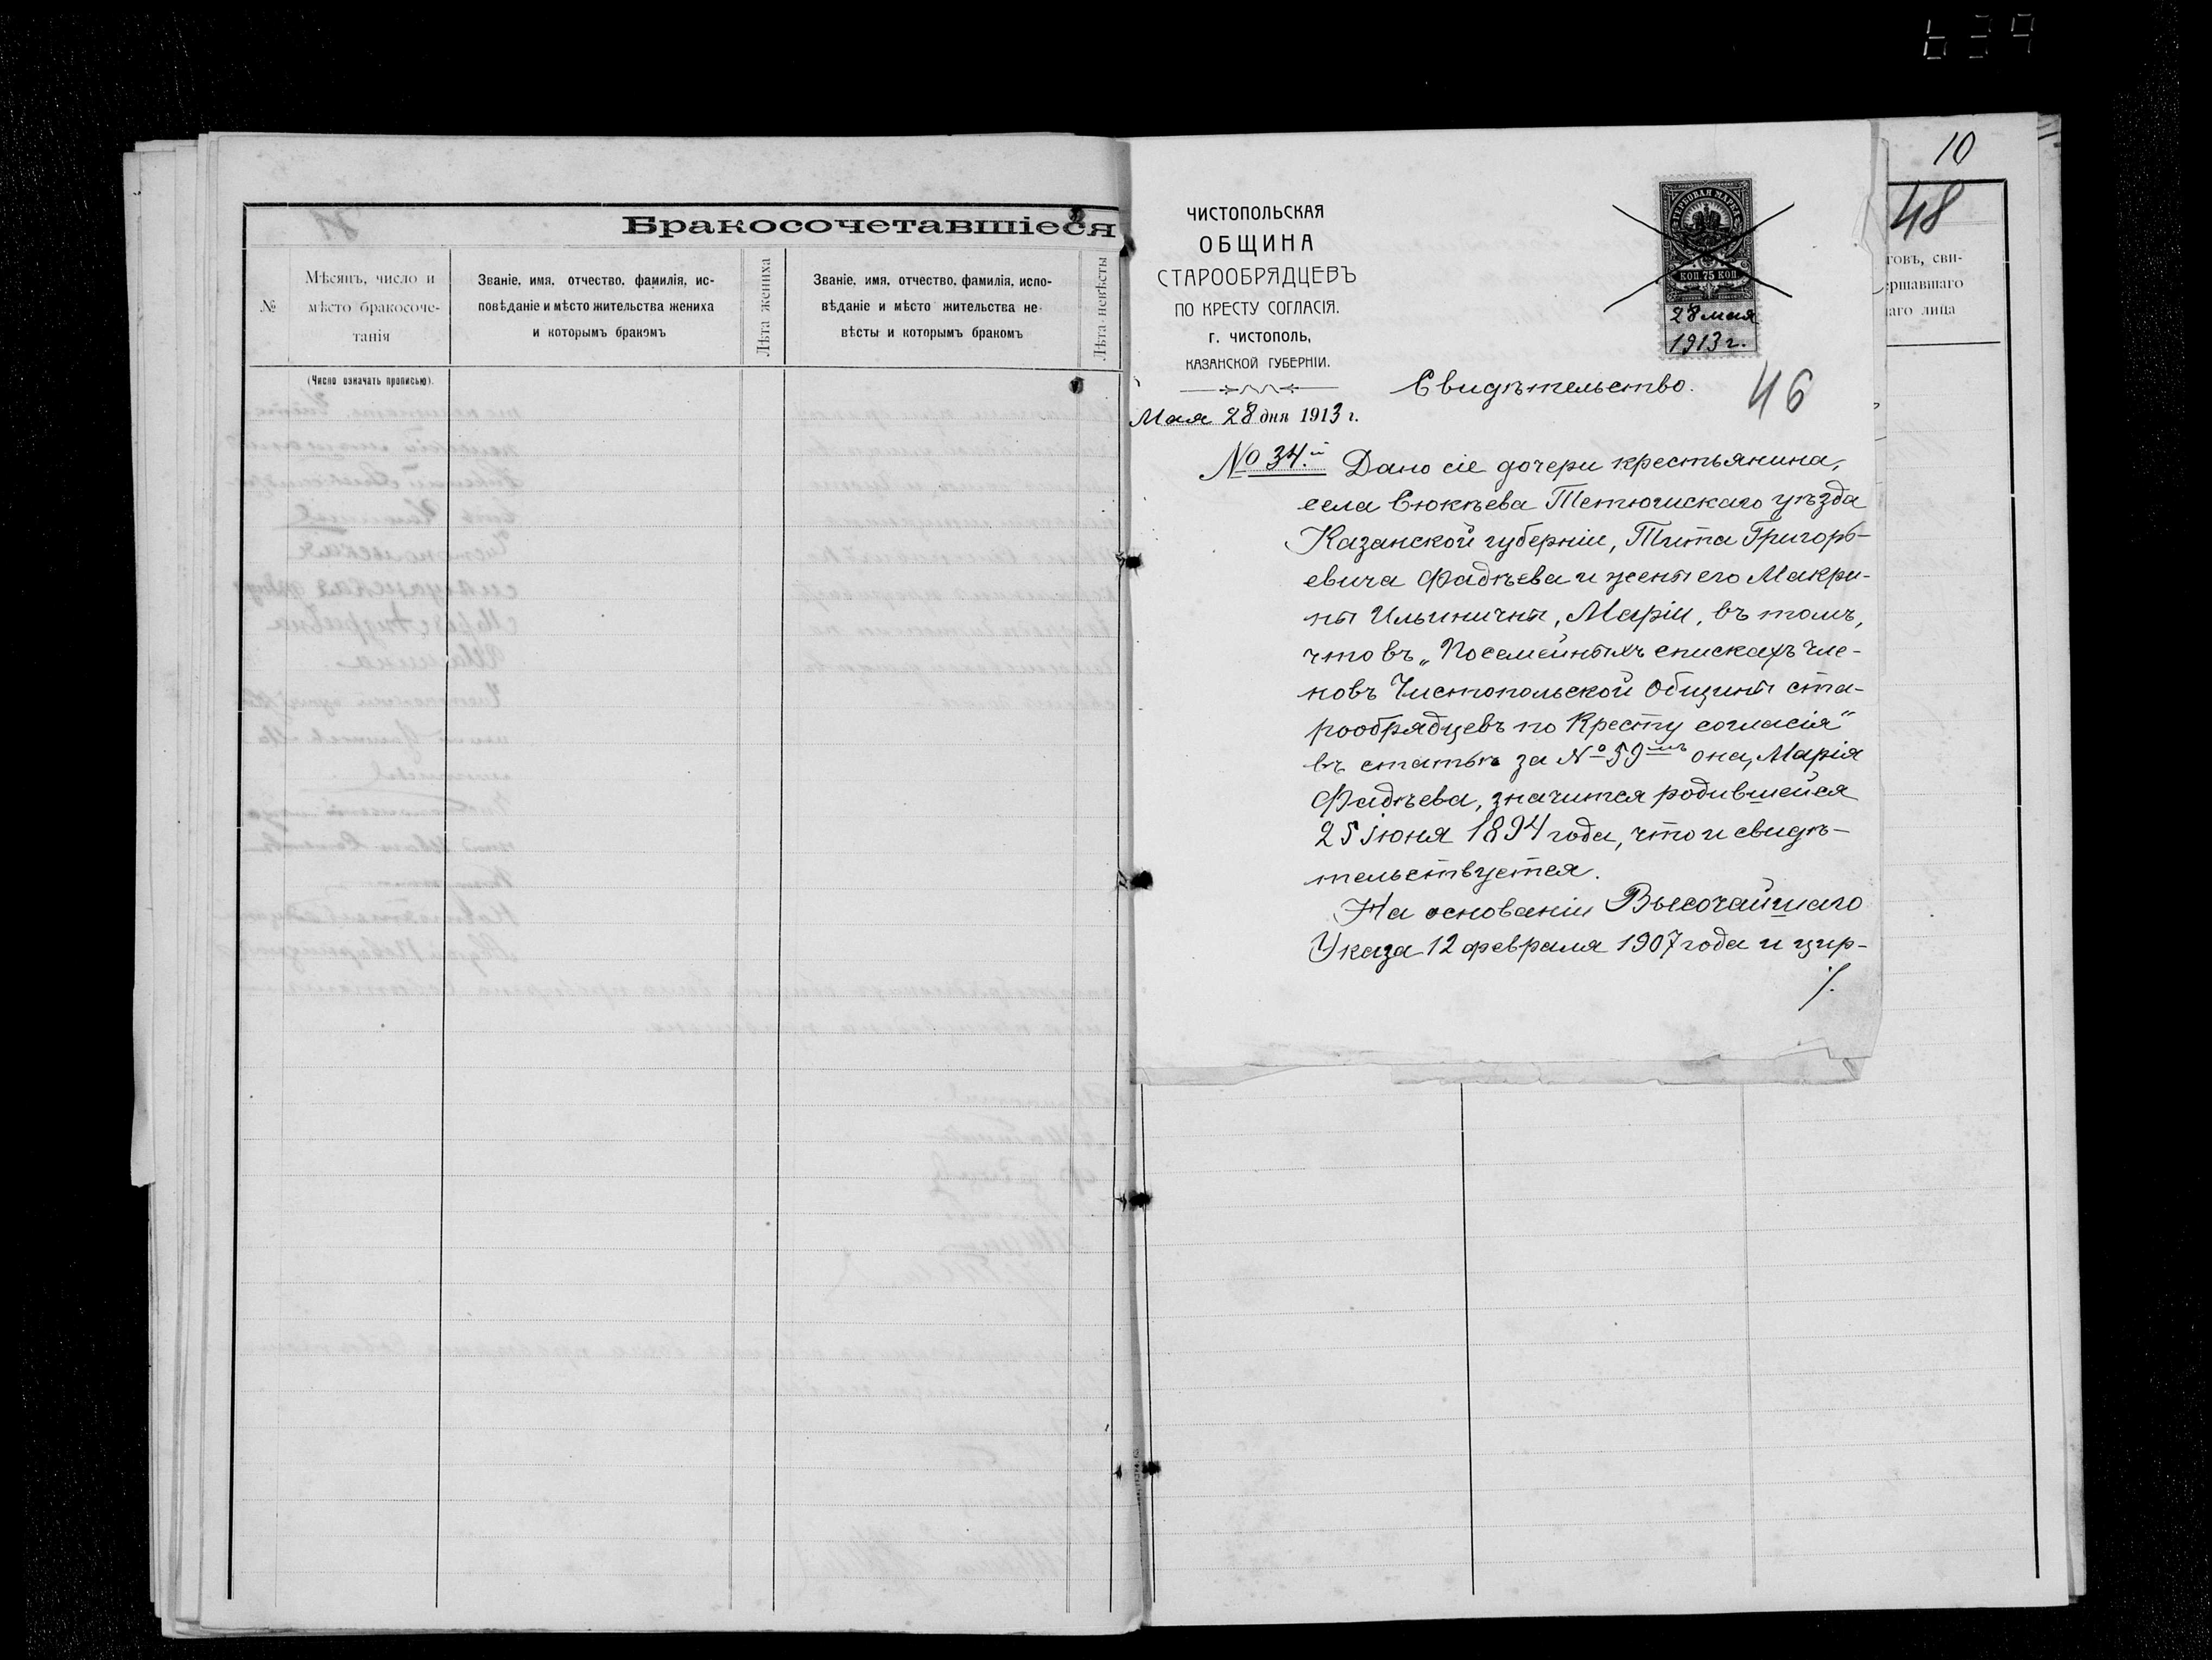 Бракосочетавшіеся
№
Мѣсяцъ, число и
мѣсто бракосоче-
танія
Званіе, имя, отчество, фамилія, ис-
повѣданіе и мѣсто жительства жениха
и которымъ бракомъ
Лѣта жениха
Званіе, имя, отчество, фамилія, испо-
вѣданіе и мѣсто жительства не-
вѣсты и которымъ бракомъ
Лѣта невѣсты
(Число означать прописью).
ЧИСТОПОЛЬСКАЯ
ОБЩИНА
СТАРООБРЯДЦЕВЪ
ПО КРЕСТУ СОГЛАСІЯ.
г. ЧИСТОПОЛЬ,
КАЗАНСКОЙ ГУБЕРНІИ.
Мая 28 дня 1913 г.
№ 34.й
ГЕРБОВАЯ МАРКА
КОП. 75 КОП.
28 мая
1913 г.
Свидѣтельство.
46
Дано сіе дочери крестьянина,
села Сюкѣева Тетюшскаго уѣзда
Казанской губерніи, Тита Григорь-
евича Фадѣева и жены его Макри-
ны Ильиничны, Маріи, въ томъ,
что въ „Посемейныхъ спискахъ чле-
новъ Чистопольской Общины ста-
рообрядцевъ по Кресту согласія"
въ статьѣ за № 59мъ она, Марія
Фадѣева, значится родившейся
25 іюня 1894 года, что и свидѣ-
тельствуется.
На основаніи Высочайшаго
Указа 12 февраля 1907 года и цир-
./.
10
48
говъ, сви-
ершавшаго
наго лица